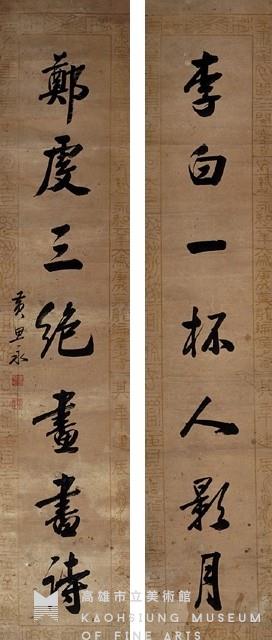 李白一杯人影月
鄭虔三絕畫書詩
黃思永
高雄市立美術館
KAOHSIUNG MUSEUM
OF FINE ARTS